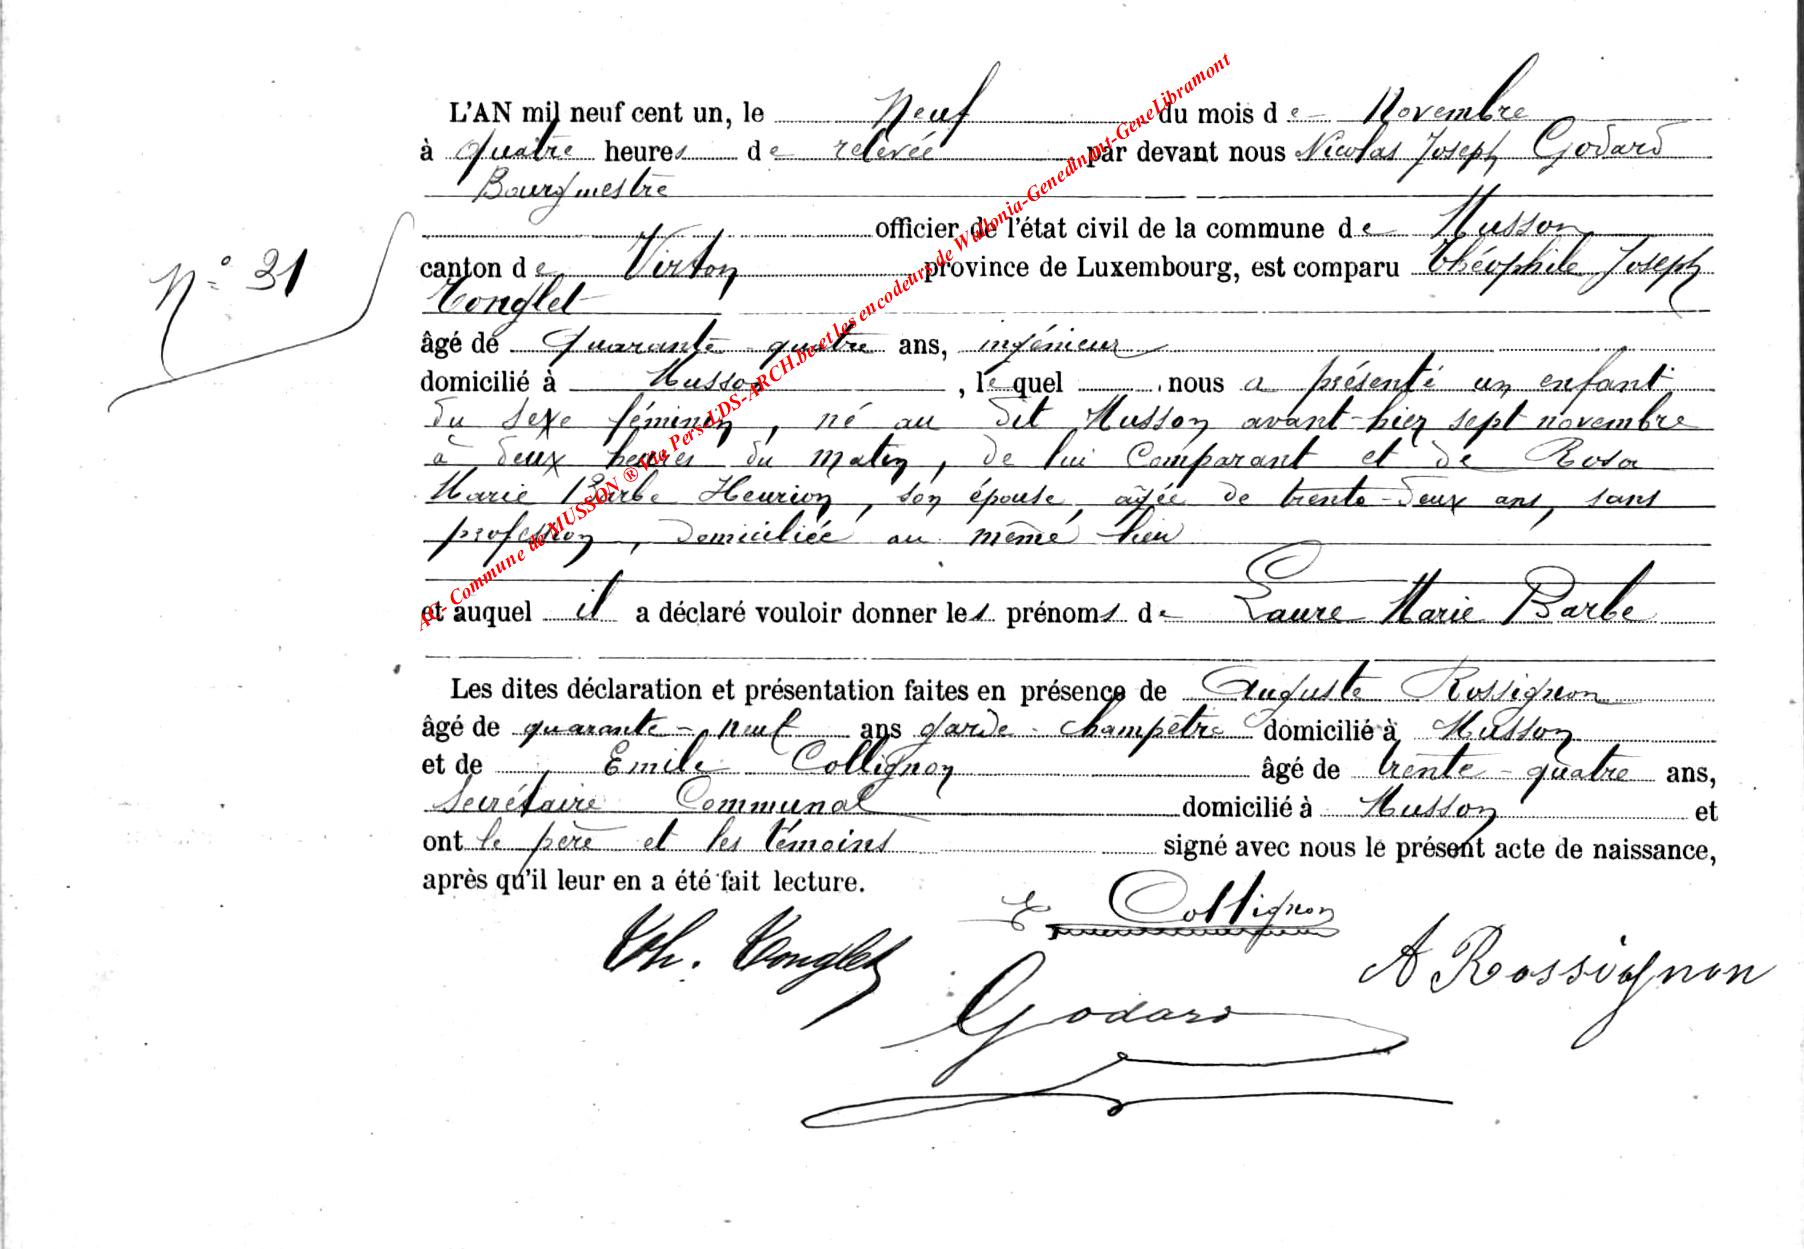 L'AN mil neuf cent un, le Neuf du mois de Novembre
à quatre heures de relevée par devant nous Nicolas Joseph Godard
Bourgmestre
officier de l'état civil de la commune de Musson
N° 31
canton de Virton province de Luxembourg, est comparu Théophile Joseph
Tonglet
âgé de quarante-quatre ans, ingénieur
domicilié à Musson, lequel nous a présenté un enfant
du sexe féminin, né au dit Musson avant-hier sept novembre
à deux heures du matin, de lui Comparant et de Rosa
Marie Barbe Henrion, son épouse, âgée de trente-deux ans, sans
profession, domiciliée au même lieu
et auquel il a déclaré vouloir donner les prénoms de Laure Marie Barbe
Les dites déclaration et présentation faites en présence de Auguste Rossignon
âgé de quarante-neuf ans garde-champêtre domicilié à Musson
et de Emile Collignon âgé de trente-quatre ans,
Secrétaire Communal domicilié à Musson et
ont le père et les témoins signé avec nous le présent acte de naissance,
après qu'il leur en a été fait lecture.
E Collignon
Th. Tonglet
A Rossignon
Godard
AC- Commune de MUSSON ® Via Perso LDS-ARCH.be et les encodeurs de Wallonia-Genedinant-GeneLibramont